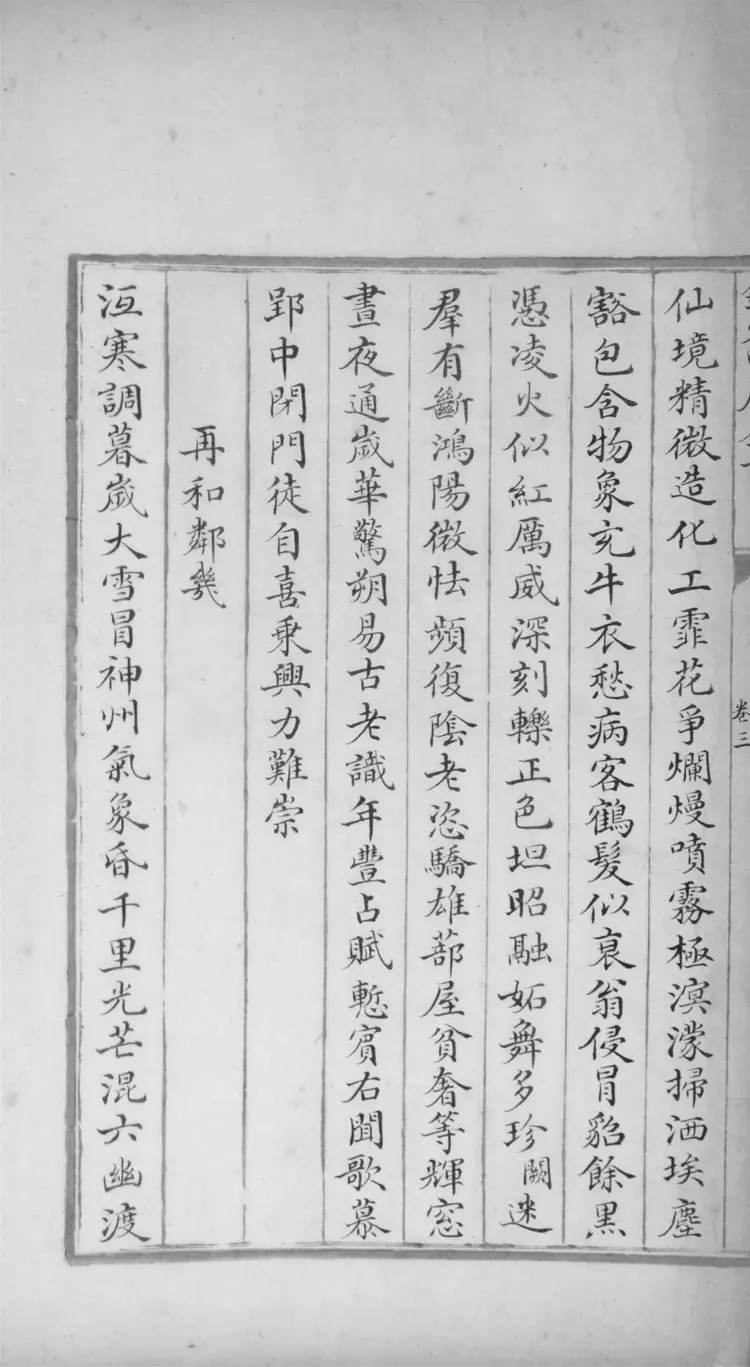 卷三
仙境精微造化工霏花爭爛熳噴霧極溟濛掃洒埃塵
豁包含物象充牛衣愁病客鶴髮似衰翁侵冐貂餘黒
憑凌火似紅厲威深刻轢正色坦昭融妬舞多珍闕迷
羣有斷鴻陽微怯頻復陰老恣驕雄蔀屋貧奢等輝窓
晝夜通嵗華驚朔易古老識年豐占賦慙賔右聞歌慕
郢中閉門徒自喜乗興力難崇
再和鄰幾
沍寒調暮嵗大雪冒神州氣象昏千里光芒混六幽渡